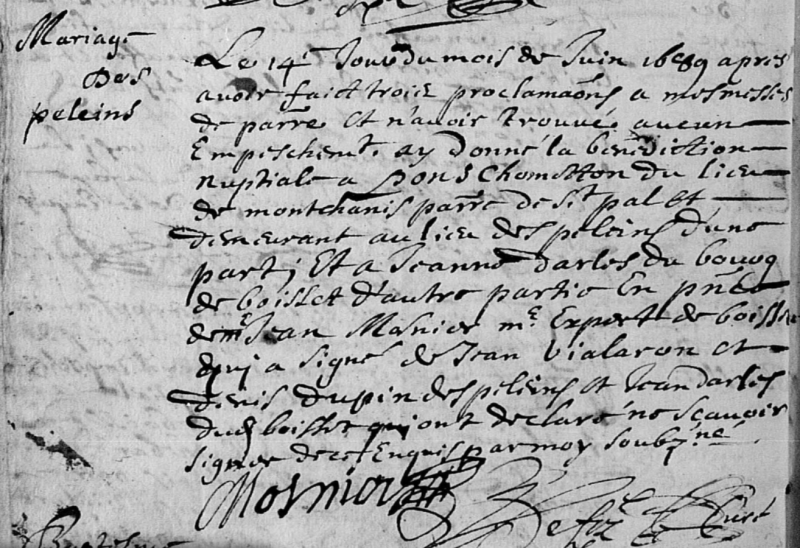 Mariage
Des
peleins
Le 14e Jour du mois de Juin 1689 apres
avoir faict trois proclamaõns a mes messes
de parre et n'avoir trouvé aucun
Empeschemt. ay donné la benediction
nuptiale a pons Chometton du lieu
de montchanis parre de st pal et
demeurant au lieu des peleins d'une
part; Et a Jeanne darles du bourg
de boisset d'autre partie En pñce
de mre Jean Mosnier me Expert de boisset
qui a signé de Jean Vialaron et
denis dupin des peleins et Jean darles
dud boisset qui ont declaré ne scavoir
signer de ce Enquis par moy soubzné
Mosnier Curé